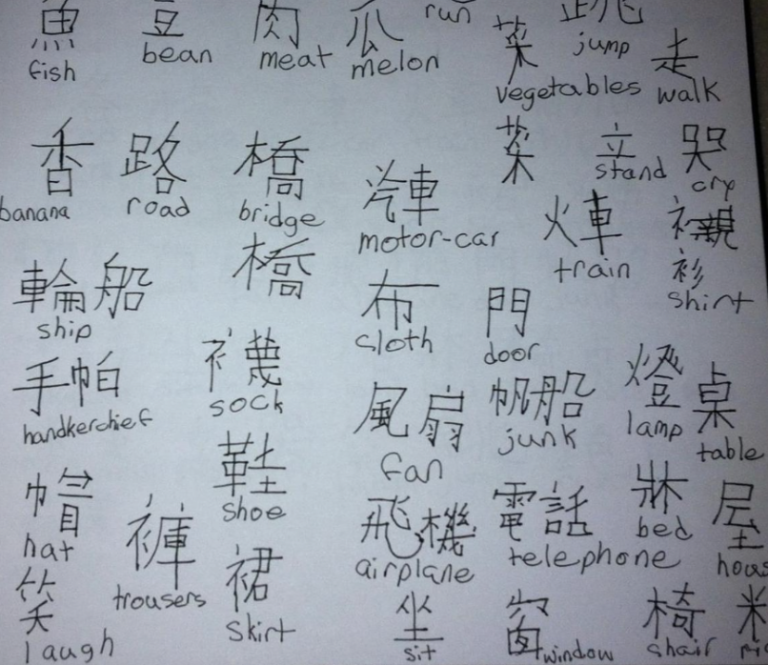 魚 豆 肉 瓜 run 跳
fish bean meat melon 菜 jump 走
vegetables walk
香 路 橋 菜 立 哭
banana road bridge 汽車 stand cry
motor-car 火車 襯
train 衫
輪船 橋 布 門 shirt
ship cloth door
手帕 襪 燈 桌
handkerchief sock 風扇 帆船 lamp table
fan junk
帽 鞋 飛機 電話 牀 屋
hat shoe bed
褲 airplane telephone
笑 trousers 裙 坐 窗 椅 米
laugh skirt sit window chair